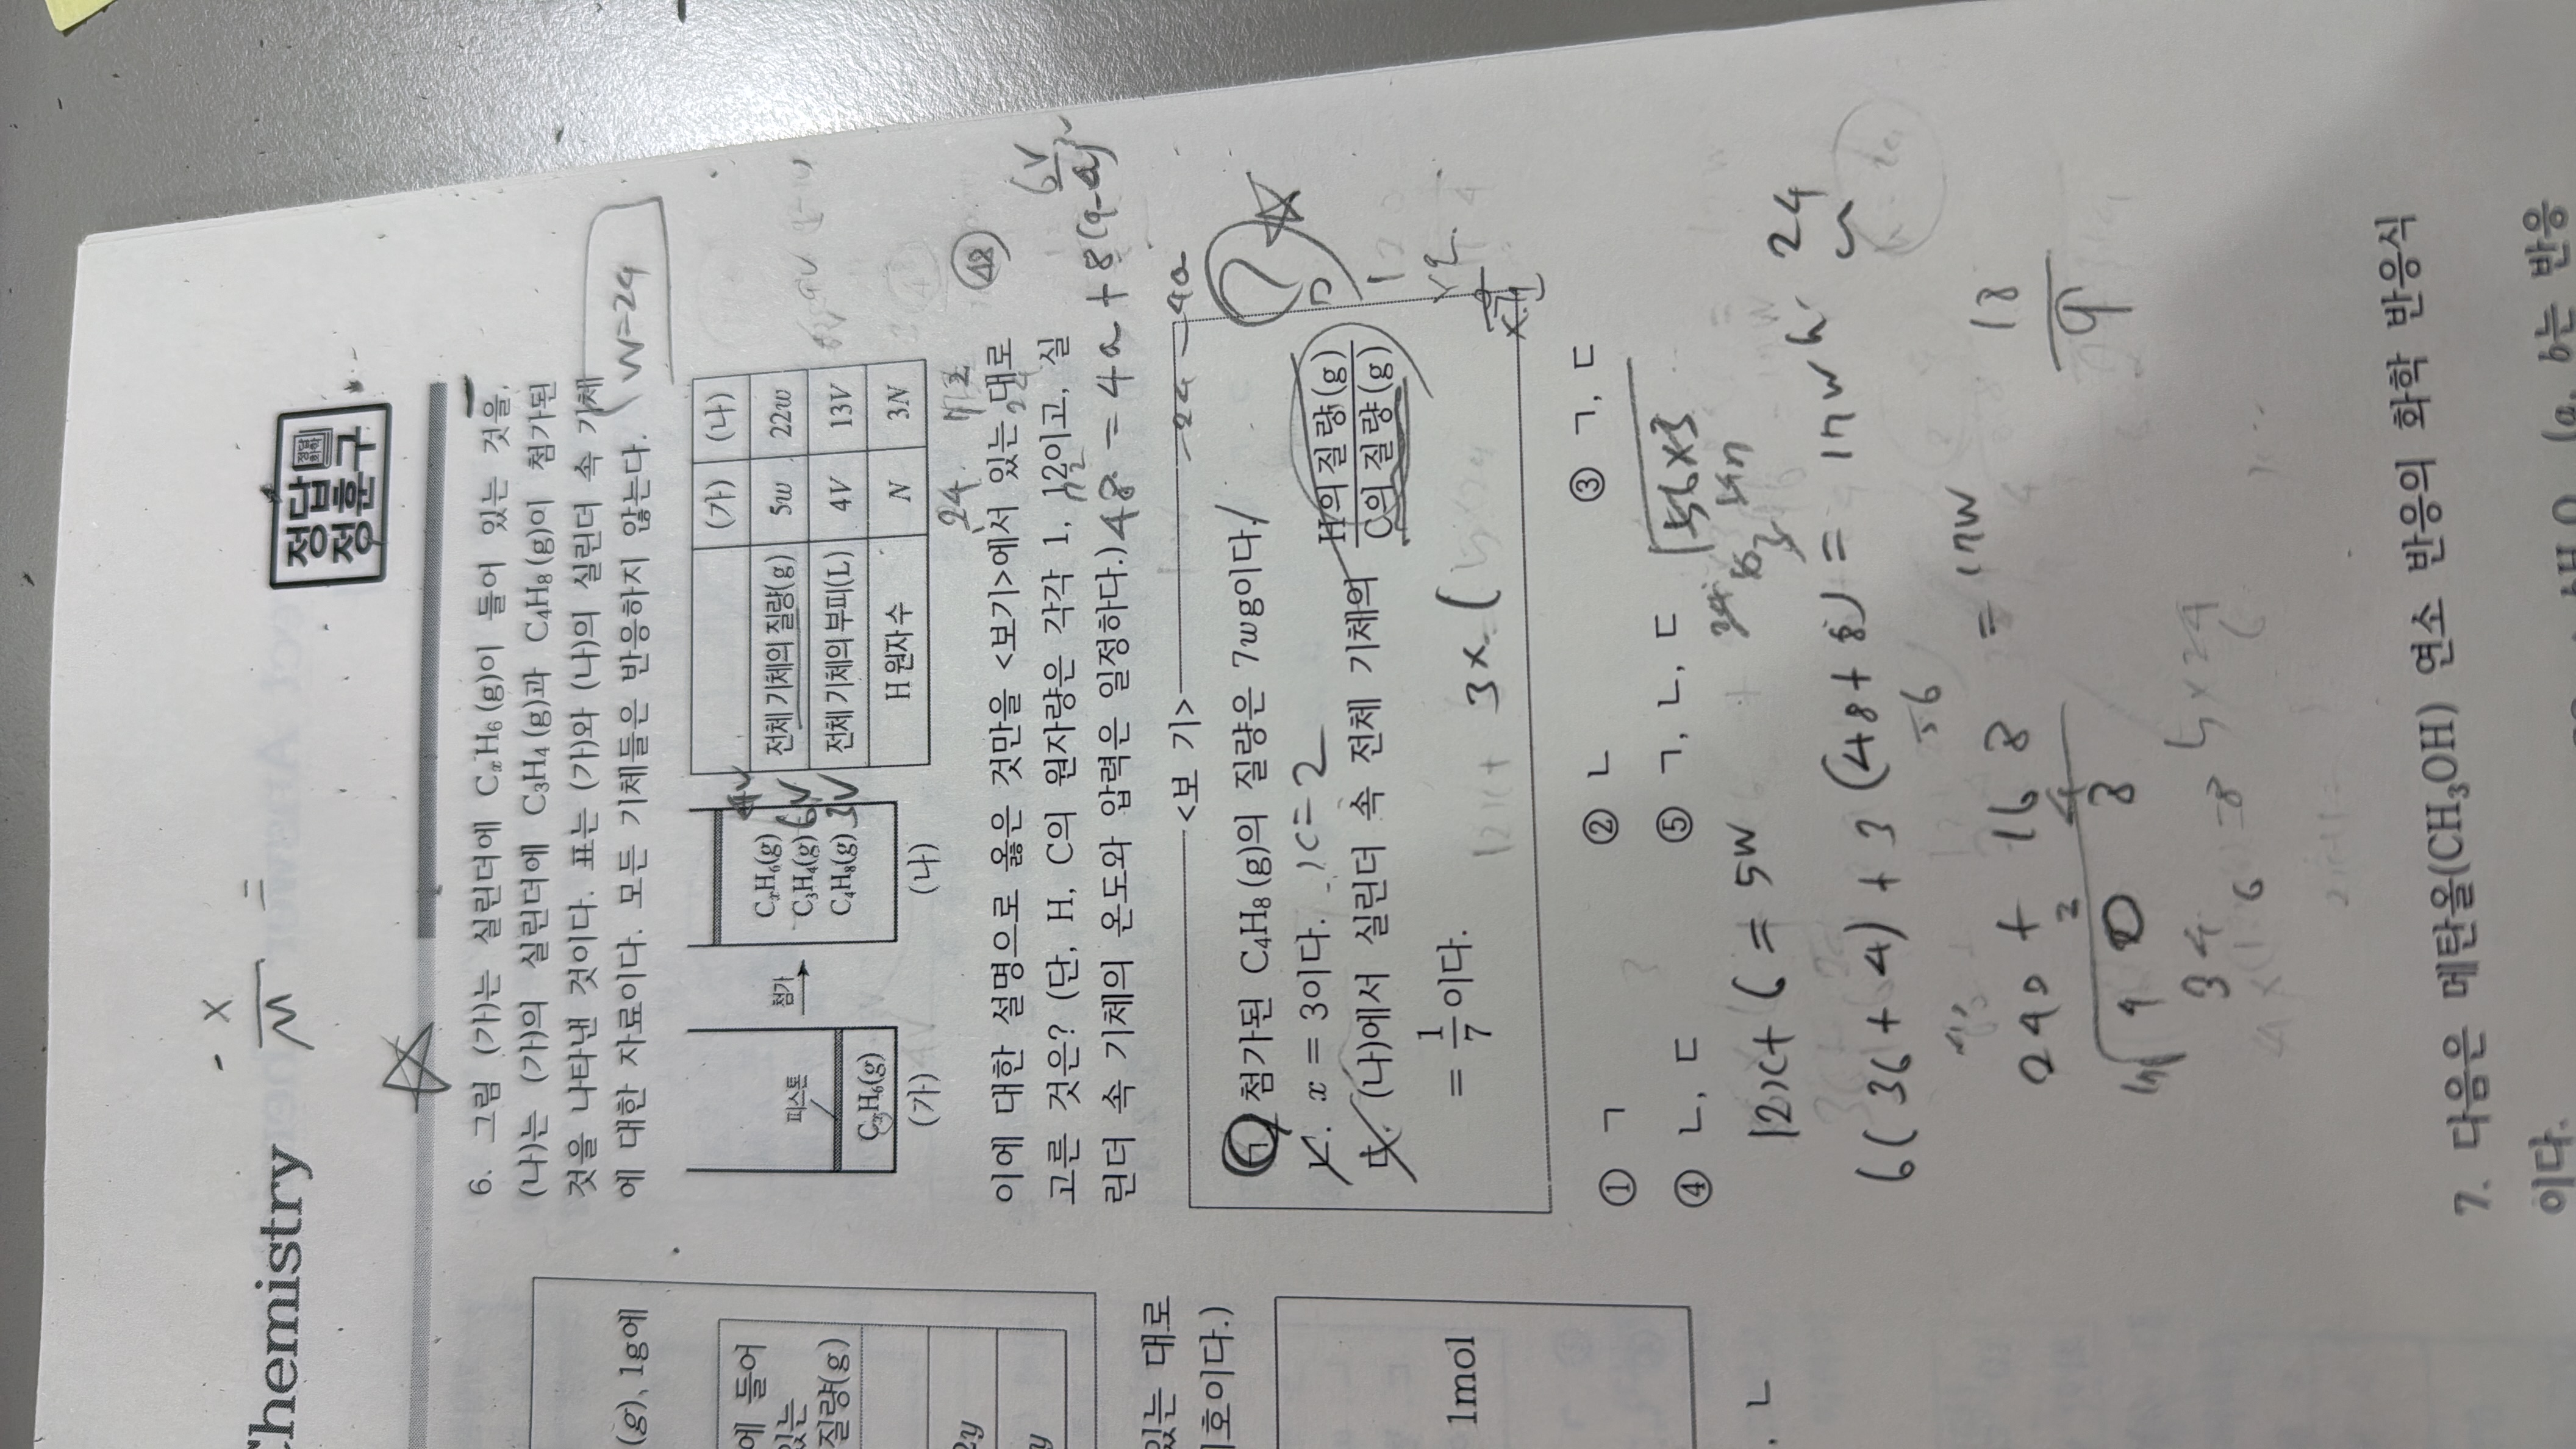 Chemistry
정답
정훈구
6. 그림 (가)는 실린더에 CxH6(g)이 들어 있는 것을,
(나)는 (가)의 실린더에 C3H4(g)과 C4H8(g)이 첨가된
것을 나타낸 것이다. 표는 (가)와 (나)의 실린더 속 기체
에 대한 자료이다. 모든 기체들은 반응하지 않는다.
w=24
피스톤
CxH6(g)
(가)
첨가
CxH6(g) 4V
C3H4(g) 6V
C4H8(g) 3V
(나)
(가) (나)
전체 기체의 질량(g) 5w 22w
전체 기체의 부피(L) 4V 13V
H 원자 수 N 3N
24 72
48
이에 대한 설명으로 옳은 것만을 <보기>에서 있는 대로
고른 것은? (단, H, C의 원자량은 각각 1, 12이고, 실
린더 속 기체의 온도와 압력은 일정하다.)
48 = 4a + 8(9-a)
6V
-24 -4a
<보 기>
ㄱ. 첨가된 C4H8(g)의 질량은 7wg이다.
ㄴ. x = 3이다. x=2
ㄷ. (나)에서 실린더 속 전체 기체의 H의 질량(g)/C의 질량(g)
= 1/7이다.
① ㄱ ② ㄴ ③ ㄱ, ㄷ
④ ㄴ, ㄷ ⑤ ㄱ, ㄴ, ㄷ
12x+6 = 5w
56×3
6(36+4) + 3(48+8) = 17w
56
24
240 + 168 = 17w
18
9
7. 다음은 메탄올(CH3OH) 연소 반응의 화학 반응식
이다. (a, b는 반응
(g), 1g에
에 들어
있는
질량(g)
2y
y
있는 대로
호이다.)
1mol
ㄴ